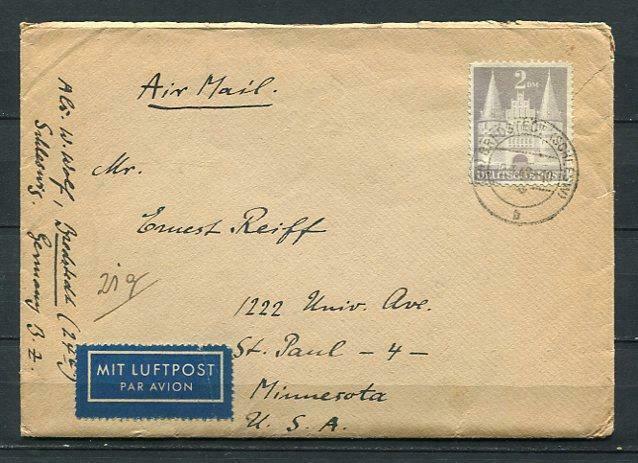 Air Mail.
2 DM
DEUTSCHE POST
BREDSTEDT (SCHLESW)
b
Mr.
Ernest Reiff
1222 Univ. Ave.
St. Paul - 4 -
Minnesota
U. S. A.
Abs. W. Wolf, Bredstedt (24b)
Schleswig. Germany B. Z.
MIT LUFTPOST
PAR AVION